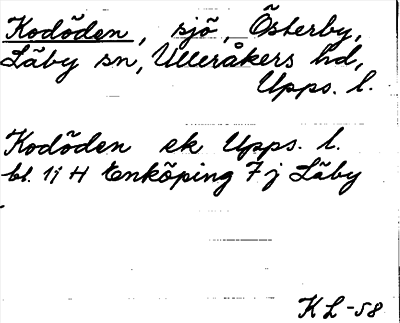 Kodöden, sjö, Österby,
Läby sn, Ulleråkers hd,
Upps. l.
Kodöden ek Upps. l.
bl. 1j H Enköping 7j Läby
KL-58